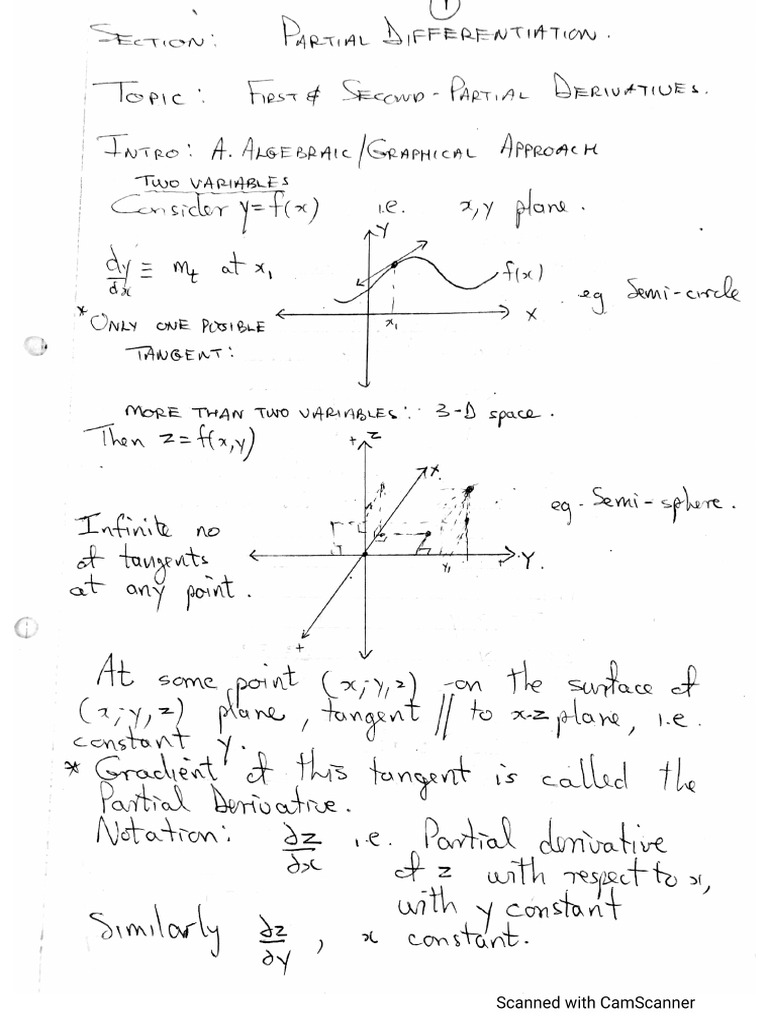 1
SECTION: PARTIAL DIFFERENTIATION.
TOPIC: FIRST & SECOND-PARTIAL DERIVATIVES.
INTRO: A. ALGEBRAIC/GRAPHICAL APPROACH
TWO VARIABLES
Consider y=f(x) i.e. x,y plane.
Y
dy/dx ≡ mt at x1
f(x)
eg Semi-circle
* ONLY ONE POSIBLE
x1 X
TANGENT:
MORE THAN TWO VARIABLES: 3-D space.
Then z=f(x,y)
+ Z
X
eg. Semi-sphere.
Infinite no
of tangents
Y1 Y.
at any point.
+
At some point (x;y,z) on the surface of
(x;y,z) plane, tangent // to x-z plane, i.e.
constant y.
* Gradient of this tangent is called the
Partial Derivative.
Notation: ∂z/∂x i.e. Partial derivative
of z with respect to x,
with y constant
Similarly ∂z/∂y , x constant.
Scanned with CamScanner